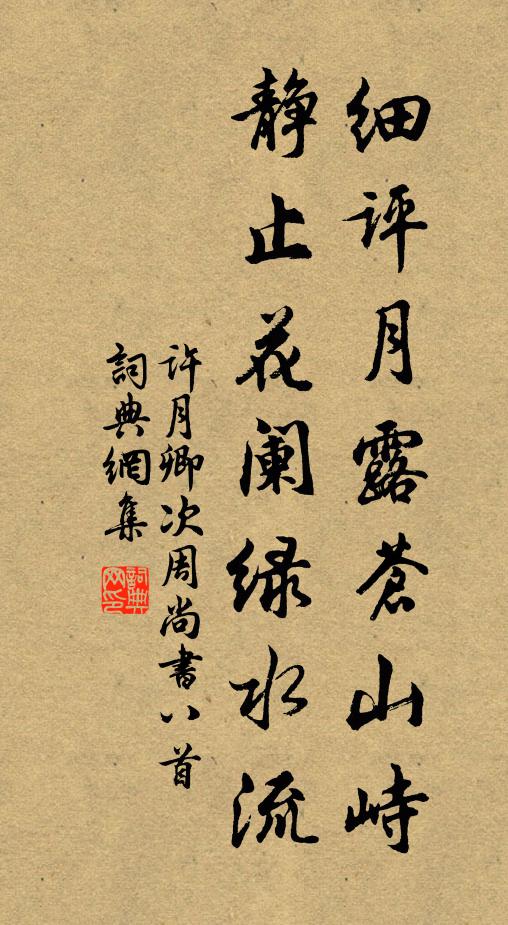 细评月露苍山峙
静止花阑绿水流
许月卿次周尚書八首
詞典網集
詞典网印